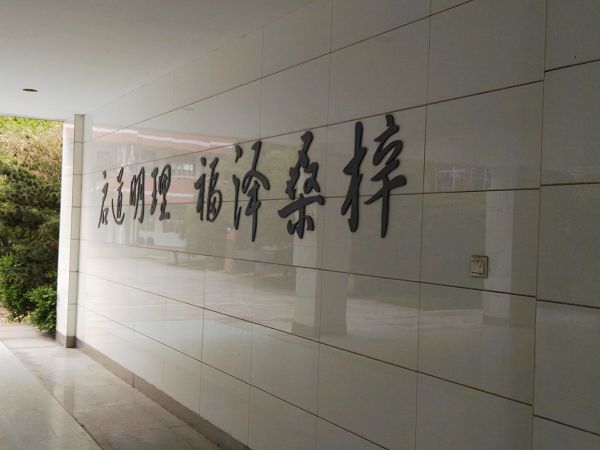 启道明理 福泽桑梓